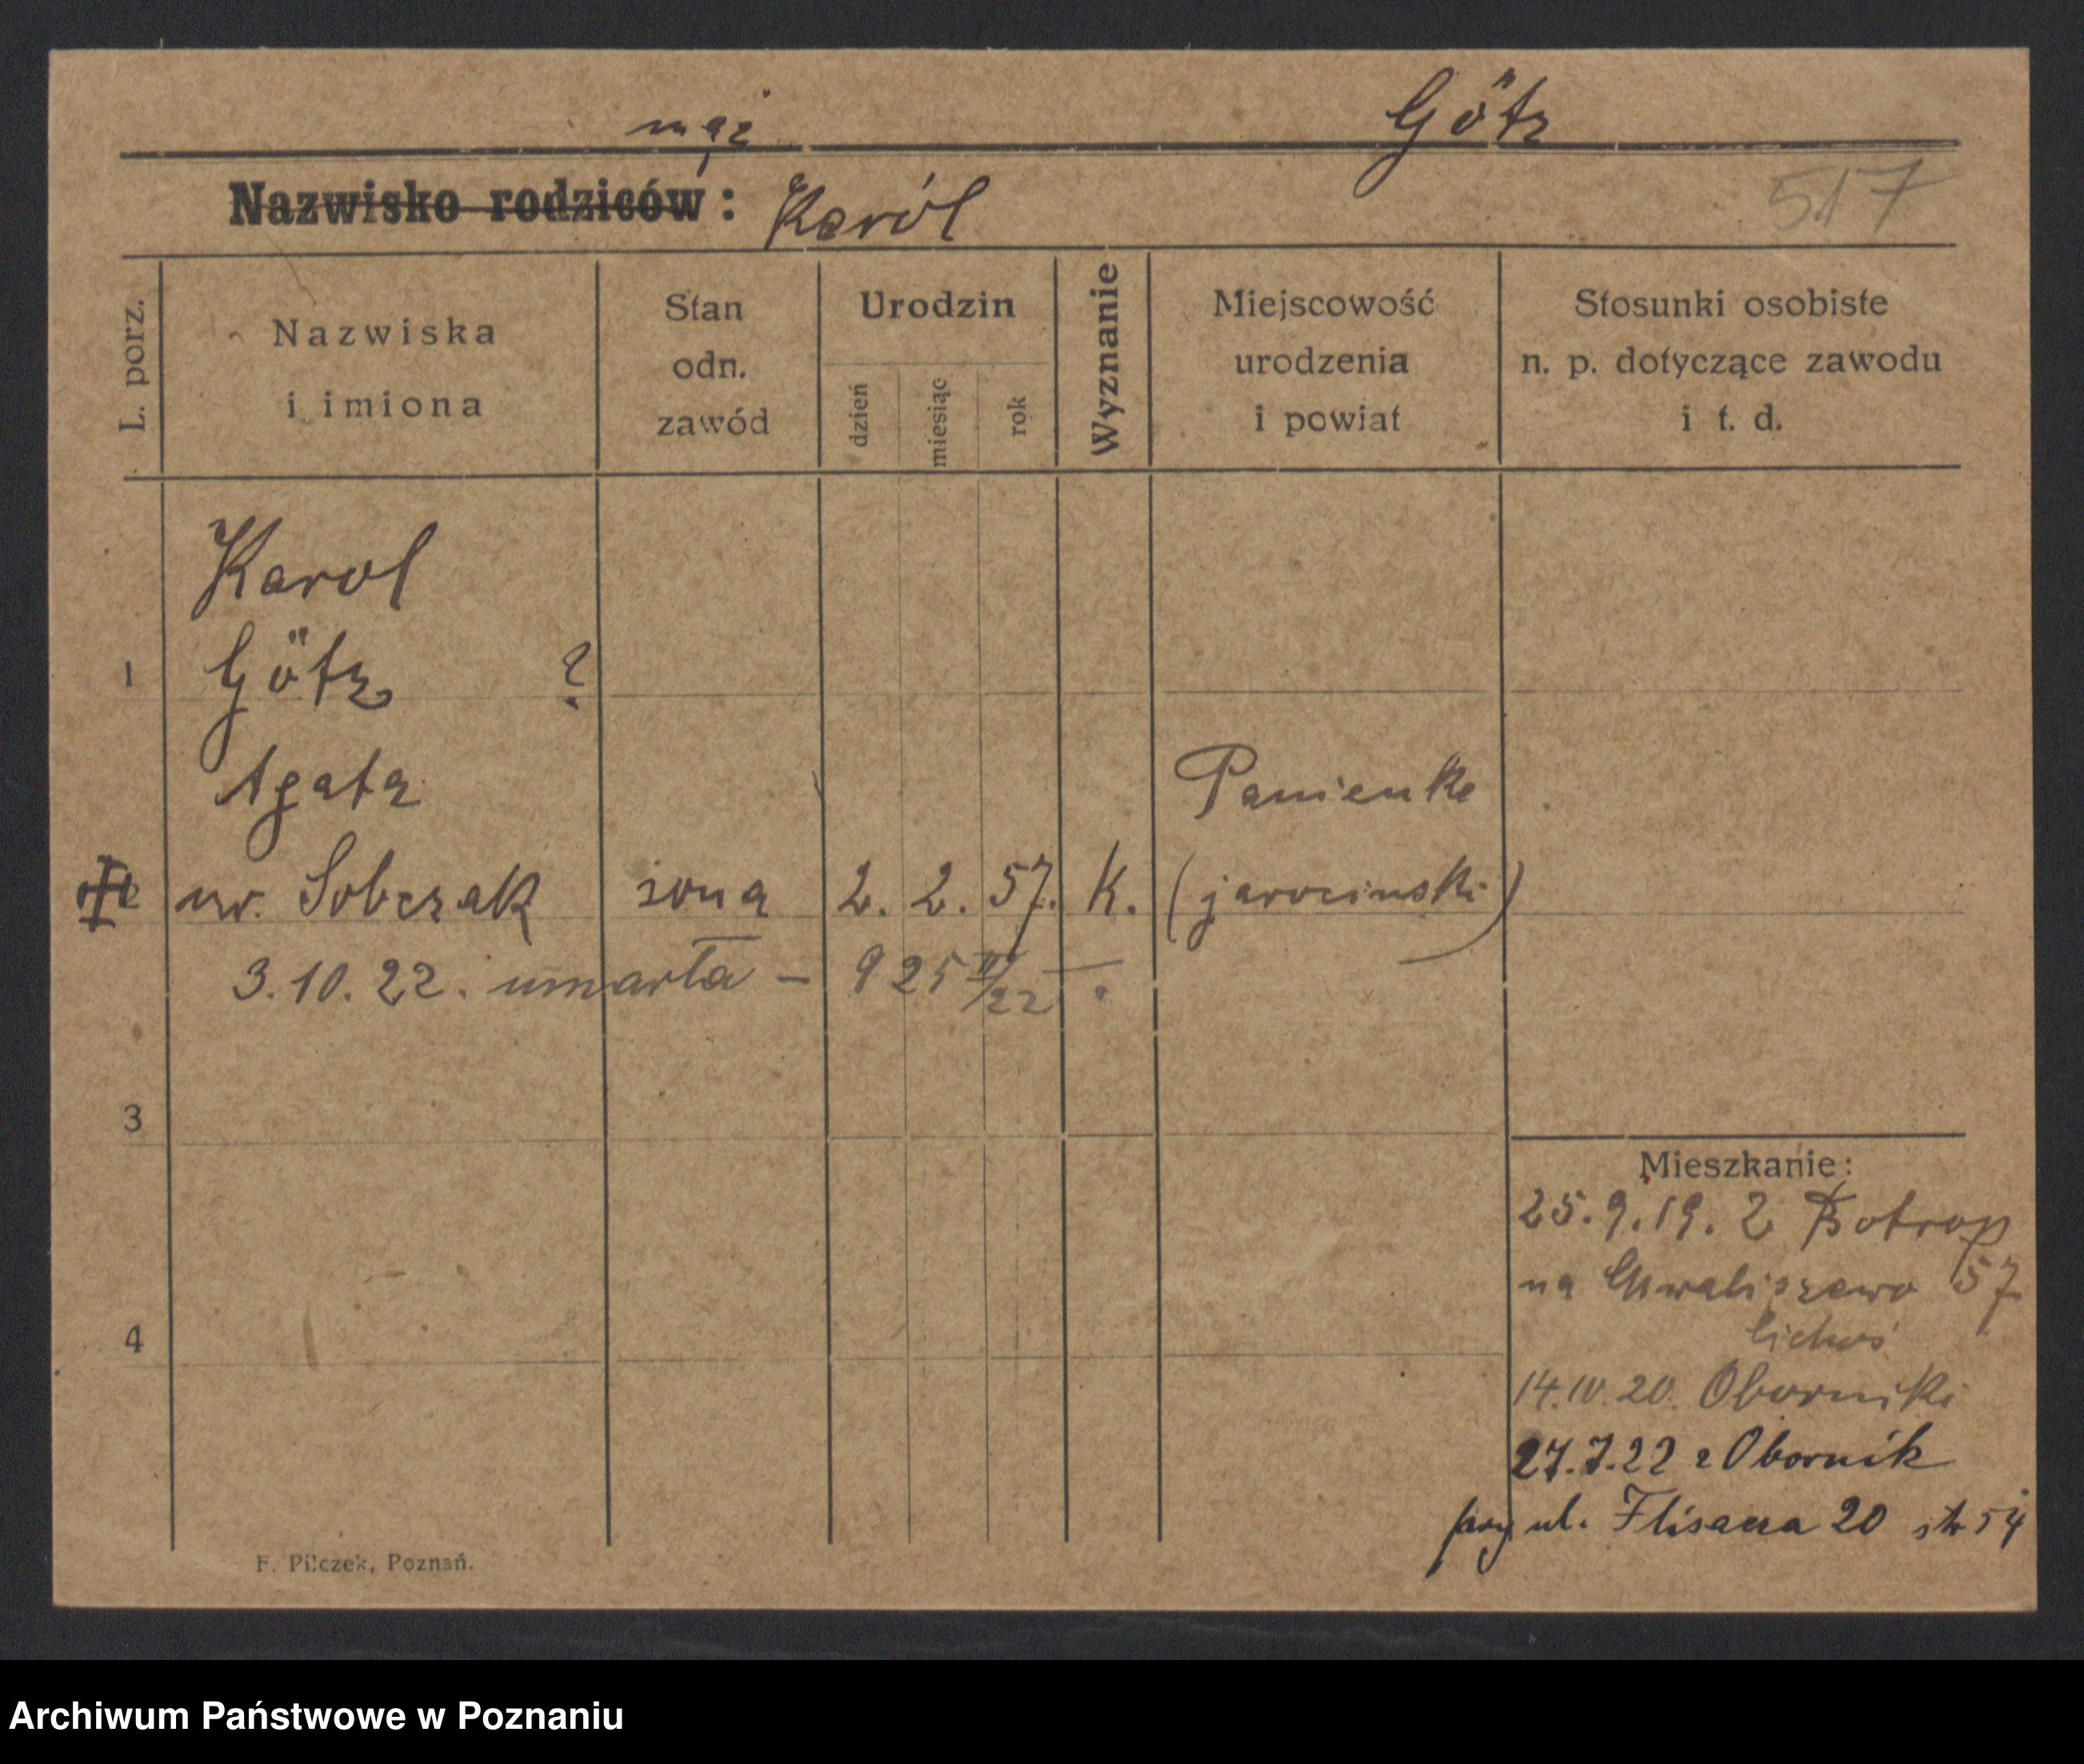 mąż Götz
Nazwisko rodziców: Karól 517
L. porz.
Nazwiska
i imiona
Stan
odn.
zawód
Urodzin
dzień
miesiąc
rok
Wyznanie
Miejscowość
urodzenia
i powiat
Stosunki osobiste
n. p. dotyczące zawodu
i t. d.
Karol
1 Götz ?
Agata Panienka
ur. Sobczak żona 2. 2. 57. K. (jarocinski)
3.10.22. umarła – 9 25 /22
3
4
Mieszkanie:
25.9.19. z Botrop
na Chwaliszewo 57
Cichoś
14.IV.20. Oborniki
27.7.22 z Obornik
przy ul. Flisacza 20 str 54
F. Pilczek, Poznań.
Archiwum Państwowe w Poznaniu